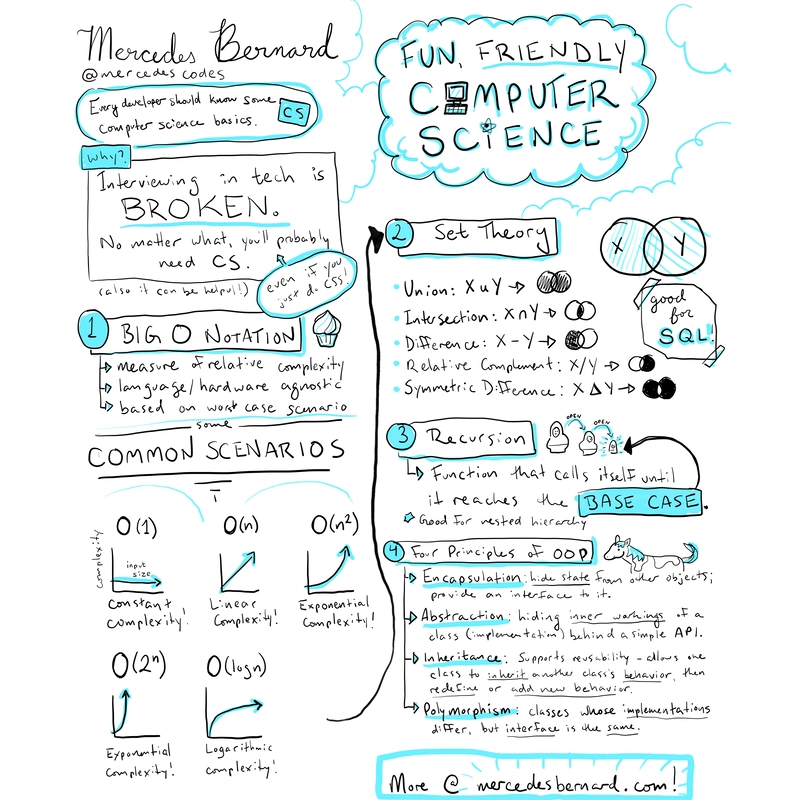 Mercedes Bernard
@mercedescodes
Every developer should know some
computer science basics.
CS
Why?
Interviewing in tech is
BROKEN.
No matter what, you'll probably
need CS.
(also it can be helpful!)
even if you
just do CSS!
1 BIG O NOTATION
measure of relative complexity
language/hardware agnostic
based on worst case scenario
some
COMMON SCENARIOS
O(1)
complexity
input
size
Constant
complexity!
O(n)
Linear
Complexity!
O(n²)
Exponential
Complexity!
O(2ⁿ)
Exponential
complexity!
O(logn)
Logarithmic
complexity!
FUN, FRIENDLY
COMPUTER
SCIENCE
2 Set Theory
X Y
good
for
SQL!
Union: X ∪ Y →
Intersection: X ∩ Y →
Difference: X - Y →
Relative Complement: X/Y →
Symmetric Difference: X Δ Y →
3 Recursion
OPEN OPEN
Function that calls itself until
it reaches the BASE CASE.
Good for nested hierarchy
4 Four Principles of OOP
Encapsulation: hide state from other objects;
provide an interface to it.
Abstraction: hiding inner workings of a
class (implementation) behind a simple API.
Inheritance: Supports reusability - allows one
class to inherit another class's behavior, then
redefine or add new behavior.
Polymorphism: classes whose implementations
differ, but interface is the same.
More @ mercedesbernard.com!